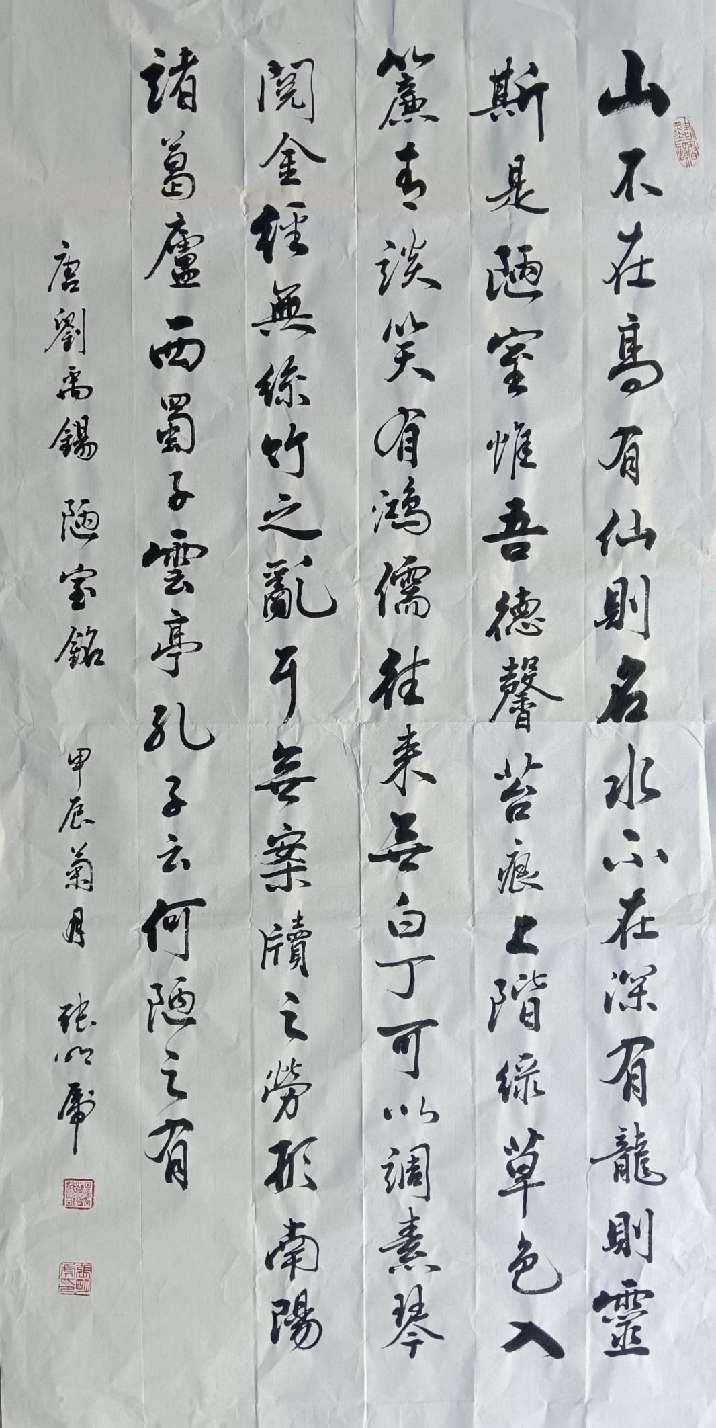 山不在高有仙則名水不在深有龍則靈
斯是陋室惟吾德馨苔痕上階綠草色入
簾青談笑有鴻儒往來無白丁可以調素琴
閱金經無絲竹之亂耳無案牘之勞形南陽
諸葛廬西蜀子雲亭孔子云何陋之有
唐劉禹錫 陋室銘 甲辰菊月 張